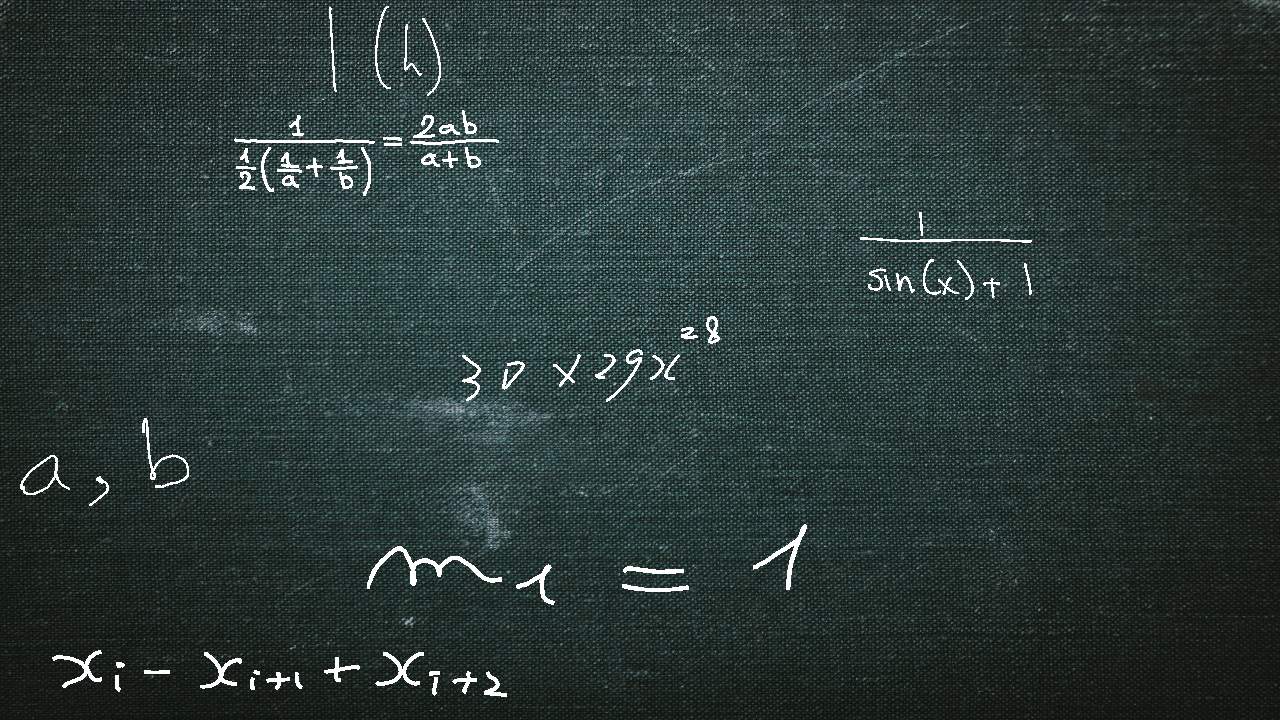 | (h)
\frac{1}{\frac{1}{2}(\frac{1}{a}+\frac{1}{b})} = \frac{2ab}{a+b}
\frac{1}{\sin(x)+1}
30 × 29x^{28}
a, b
m_1 = 1
x_i - x_{i+1} + x_{i+2}